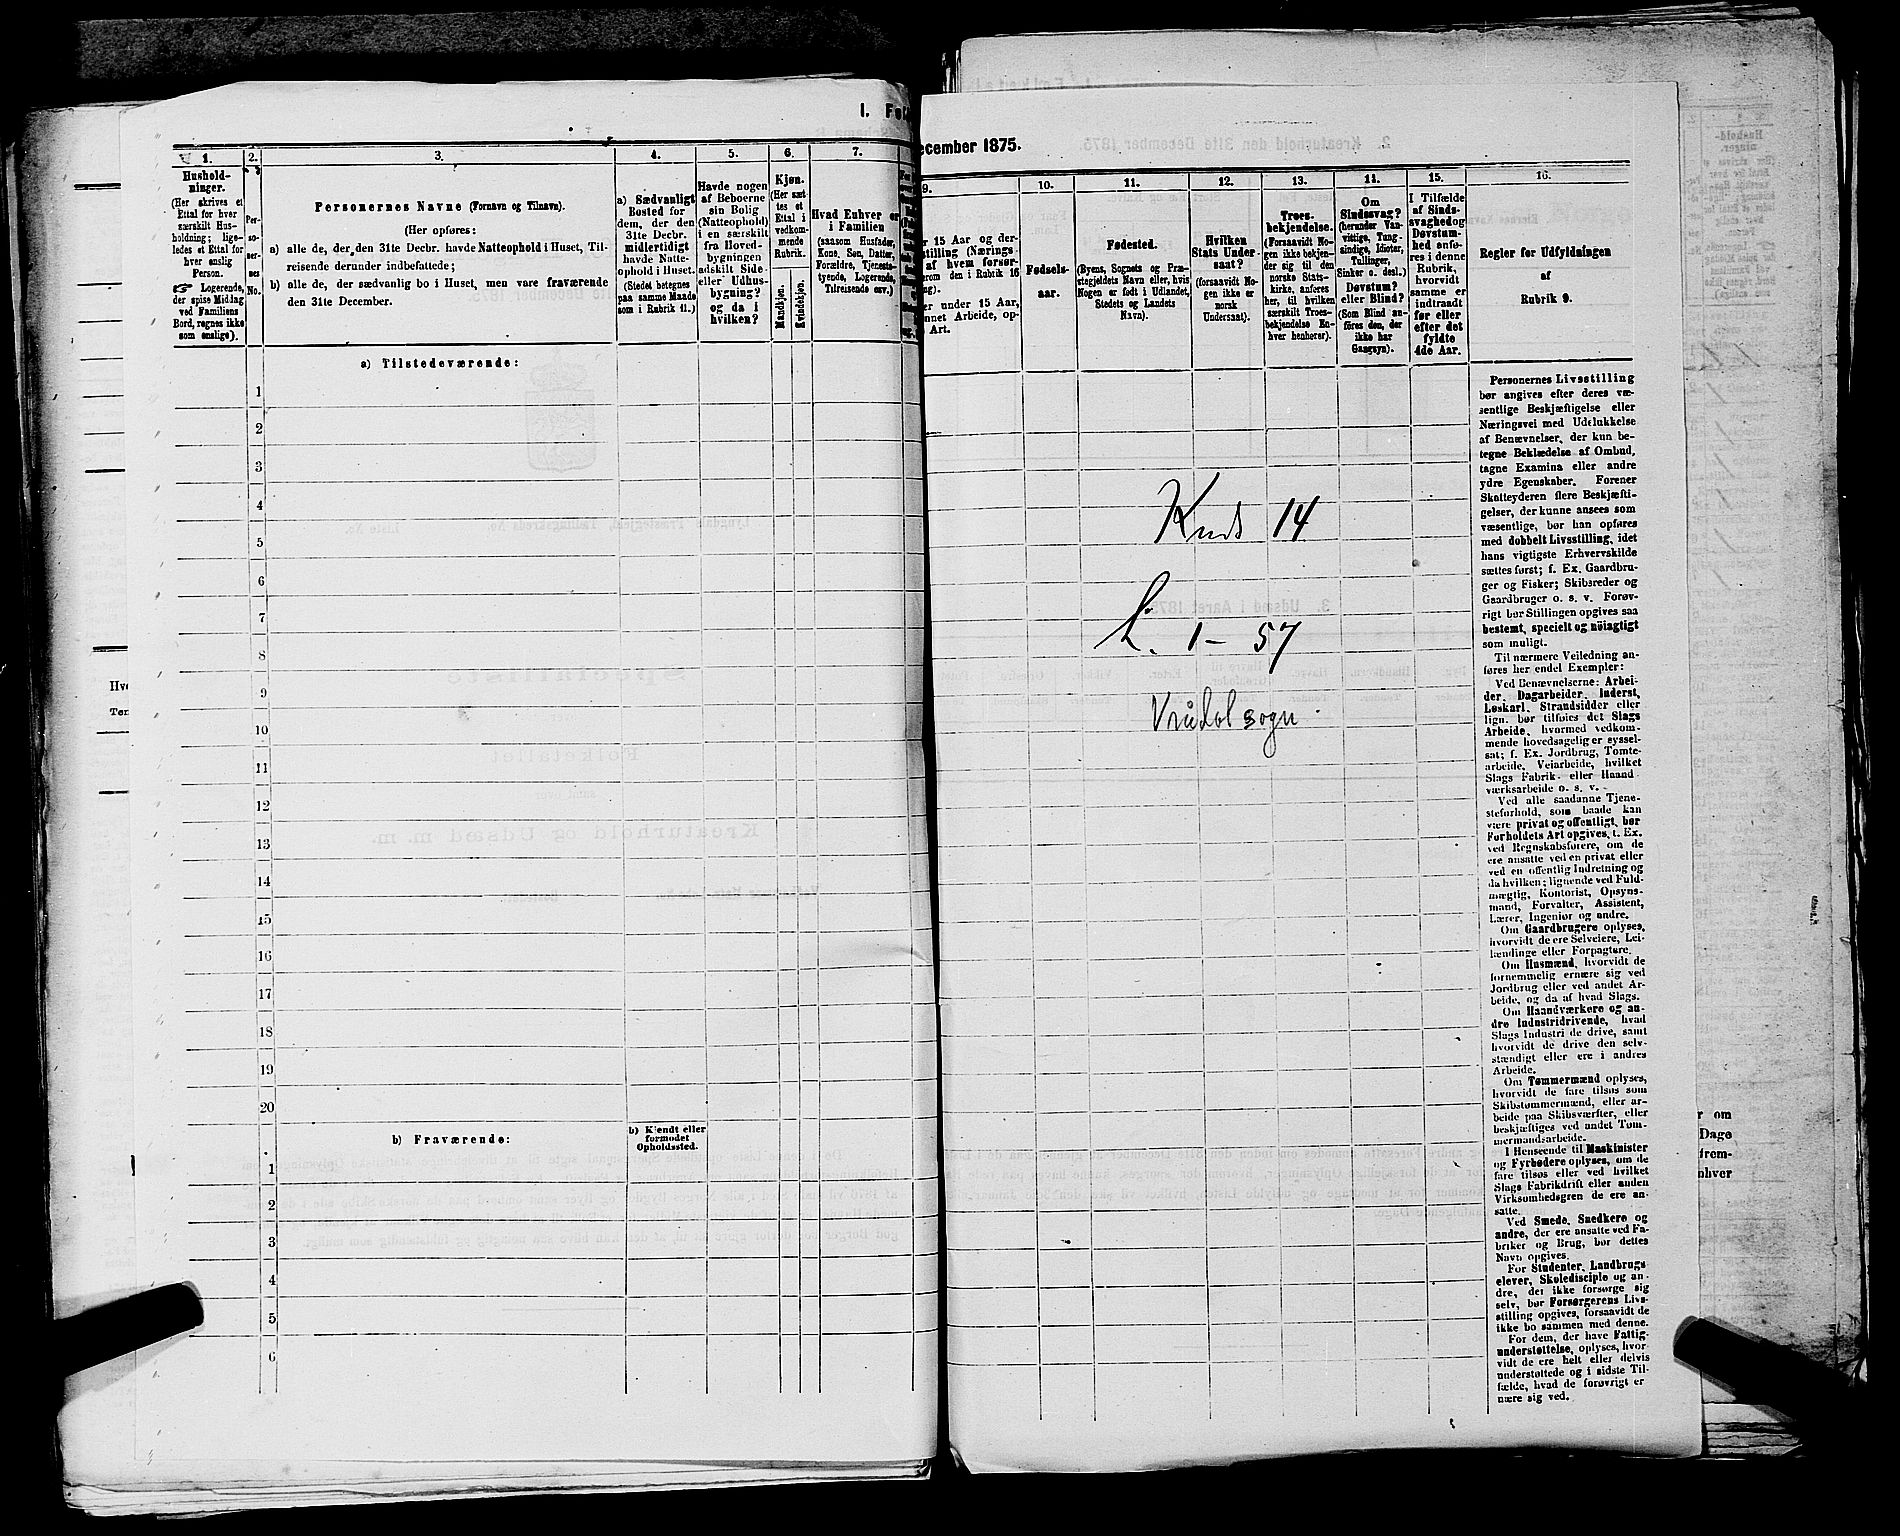 I. Fol
ecember 1875.
1.
2.
3.
4.
5.
6.
7.
9.
10.
11.
12.
13.
14.
15.
16.
Hushold-
ninger.
(Her skrives et
Ettal for hver
særskilt Hus-
holdning; lige-
ledes et Ettal for
hver enslig
Person.
☞ Logerende,
der spise Middag
ved Familiens
Bord, regnes ikke
som enslige).
Per-
so-
ner-
nes
No.
Personernes Navne (Fornavn og Tilnavn).
(Her opføres:
a) alle de, der den 31te Decbr. havde Natteophold i Huset, Til-
reisende derunder indbefattede;
b) alle de, der sædvanlig bo i Huset, men vare fraværende
den 31te December.
a) Sædvanligt
Bosted for
dem, der den
31te Decbr.
midlertidigt
havde Natte-
ophold i Huset.
(Stedet betegnes
paa samme Maade
som i Rubrik 11.)
Havde nogen
af Beboerne
sin Bolig
(Natteophold)
i en særskilt
fra Hoved-
bygningen
adskilt Side-
eller Udhus-
bygning?
og da i
hvilken?
Kjøn.
(Her sæt-
tes et
Ettal i
vedkom-
mende
Rubrik.
Mandkjøn.
Kvindekjøn.
Hvad Enhver er
i Familien
(saasom Husfader,
Kone, Søn, Datter,
Forældre, Tjeneste-
tyende, Logerende,
Tilreisende osv.)
r 15 Aar og der-
stilling (Nærings-
af hvem forsør-
erom den i Rubrik 16
ng).
er under 15 Aar,
nnet Arbeide, op-
Art.
Fødsels-
aar.
Fødested.
(Byens, Sognets og Præ-
stegjeldets Navn eller, hvis
Nogen er født i Udlandet,
Stedets og Landets
Navn).
Hvilken
Stats Under-
saat?
(forsaavidt No-
gen ikke er
norsk
Undersaat).
Troes-
bekjendelse.
(Forsaavidt No-
gen ikke bekjen-
der sig til den
norske Stats-
kirke, anføres
her, til hvilken
særskilt Troes-
bekjendelse En-
hver henhører).
Om
Sindssvag?
(herunder Van-
vittige, Tung-
sindige, Idioter,
Tullinger,
Sinker o. desl.)
Døvstum?
eller Blind?
(Som Blind an-
føres den, der
ikke har
Gangsyn).
I Tilfælde
af Sinds-
svaghed og
Døvstum-
hed anfø-
res i denne
Rubrik,
hvorvidt
samme er
indtraadt
før eller
efter det
fyldte
4de Aar.
Regler for Udfyldningen
af
Rubrik 9.
a) Tilstedeværende:
1
2
3
4
5
6
7
8
9
10
11
12
13
14
15
16
17
18
19
20
b) Fraværende:
b) Kjendt eller
formodet
Opholdssted.
1
2
3
4
5
6
Krds 14
L. 1 - 57
Vrådal sogn.
Personernes Livsstilling
bør angives efter deres væ-
sentlige Beskjæftigelse eller
Næringsvei med Udelukkelse
af Benævnelser, der kun be-
tegne Beklædelse af Ombud,
tagne Examina eller andre
ydre Egenskaber. Forener
Skatteyderen flere Beskjæfti-
gelser, der kunne ansees som
væsentlige, bør han opføres
med dobbelt Livsstilling, idet
hans vigtigste Erhvervskilde
sættes først; f. Ex. Gaardbru-
ger og Fisker; Skibsreder og
Gaardbruger o. s. v. Forøv-
rigt bør Stillingen opgives saa
bestemt, specielt og nöiagtigt
som muligt.
Til nærmere Veiledning an-
føres her endel Exempler:
Ved Benævnelserne: Arbei-
der, Dagarbeider, Inderst,
Løskarl, Strandsidder eller
lign. bør tilføies det Slags
Arbeide, hvormed vedkom-
mende hovedsagelig er syssel-
sat; f. Ex. Jordbrug, Tomte-
arbeide, Veiarbeide, hvilket
Slags Fabrik- eller Haand-
værksarbeide o. s. v.
Ved alle saadanne Tjene-
steforhold, som baade kan
være privat og offentligt, bør
Forholdets Art opgives, t. Ex.
ved Regnskabsførere, om de
ere ansatte ved en privat eller
ved en offentlig Indretning og
da hvilken; lignende ved Fuld-
mægtig, Kontorist, Opsyns-
mand, Forvalter, Assistent,
Lærer, Ingeniør og andre.
Om Gaardbrugere oplyses,
hvorvidt de ere Selveiere, Lei-
lændinge eller Forpagtere.
Om Husmænd, hvorvidt de
fornemmelig ernære sig ved
Jordbrug eller ved andet Ar-
beide, og da af hvad Slags.
Om Haandværkere og an-
dre Industridrivende, hvad
Slags Industri de drive, samt
hvorvidt de drive den selv-
stændigt eller ere i andres
Arbeide.
Om Tømmermænd oplyses,
hvorvidt de fare tilsøs som
Skibstømmermænd, eller ar-
beide paa Skibsværfter, eller
beskjæftiges ved andet Tøm-
mermandsarbeide.
I Henseende til Maskinister
og Fyrbødere oplyses, om de
fare tilsøs eller ved hvilket
Slags Fabrikdrift eller anden
Virksomhedsgren de ere an-
satte.
Ved Smede, Snedkere og
andre, der ere ansatte ved Fa-
briker og Brug, bør dettes
Navn opgives.
For Studenter, Landbrugs-
elever, Skoledisciple og an-
dre, der ikke forsørge sig
selv, bør Forsørgerens Livs-
stilling opgives, forsaavidt de
ikke bo sammen med denne.
For dem, der have Fattig-
understøttelse, oplyses, hvor-
vidt de ere helt eller delvis
understøttede og i sidste Til-
fælde, hvad de forøvrigt er
nære sig ved.
r om
Dage
nhver